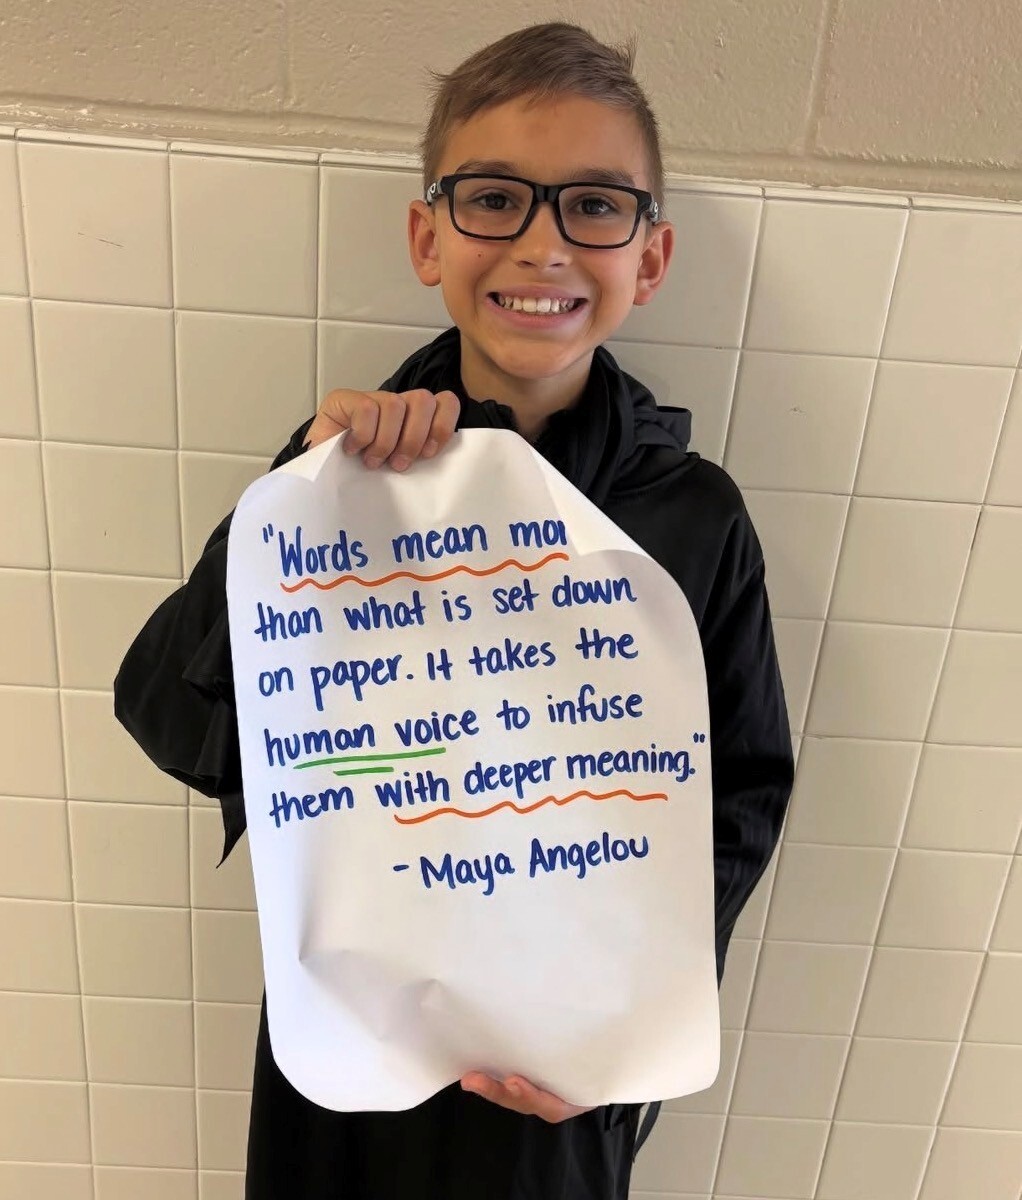 "Words mean mor
than what is set down
on paper. It takes the
human voice to infuse
them with deeper meaning."
- Maya Angelou